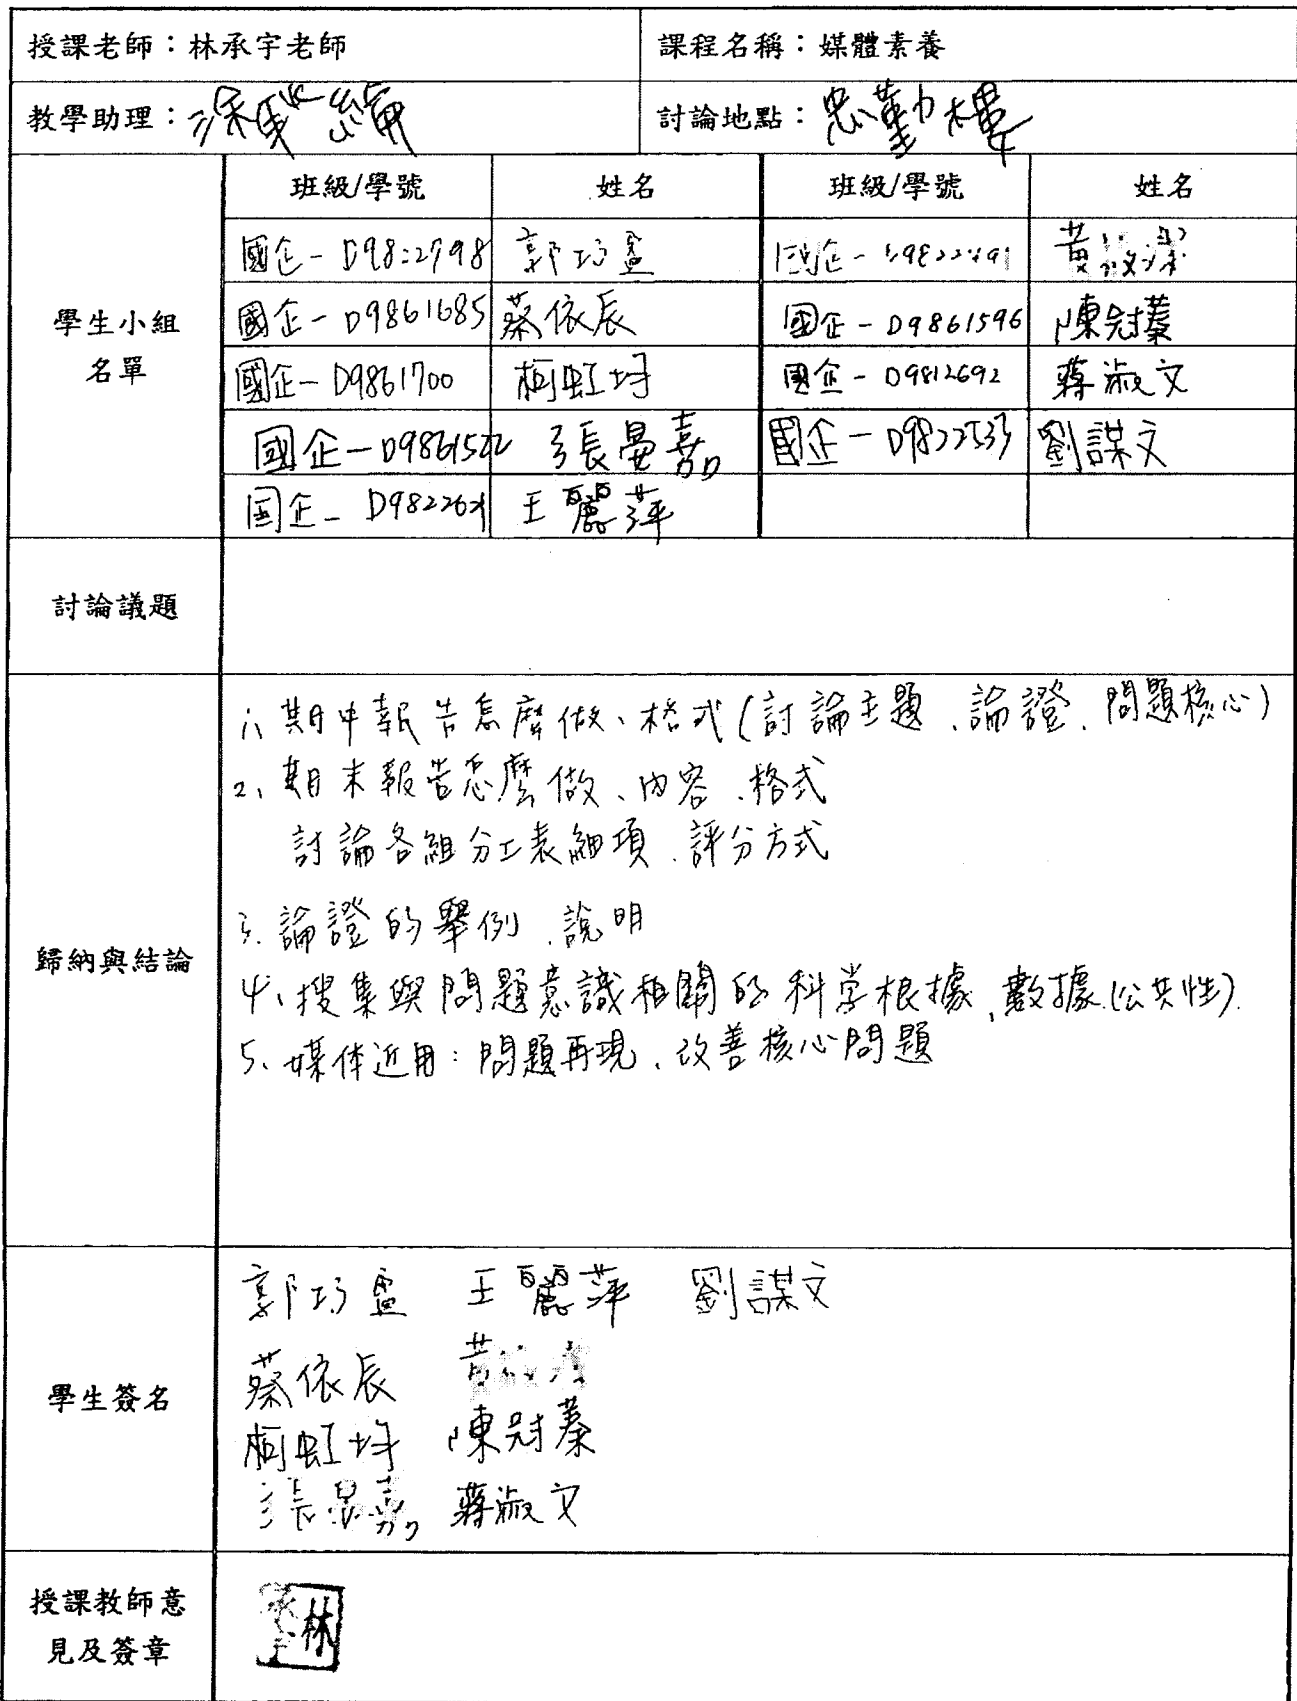 授課老師：林承宇老師 課程名稱：媒體素養
教學助理： 討論地點：忠勤樓
學生小組名單
班級/學號 姓名 班級/學號 姓名
國企一 郭巧盈 國企一 黃
國企一 D9861685 蔡依辰 國企一 D9861596 陳冠蓁
國企一 D9861700 柯虹 國企一 D9812692 蔣淑文
國企一 張晏嘉 國企一 劉謀文
国企一 王麗萍
討論議題
歸納與結論
1、期中報告怎麼做、格式(討論主題、論證、問題核心)
2、期末報告怎麼做、內容、格式
討論各組分工表細項、評分方式
3、論證的舉例、說明
4、搜集與問題意識相關的科学根據、數據(公共性)
5、媒体近用：問題再現、改善核心問題
學生簽名
郭巧盈 王麗萍 劉謀文
蔡依辰 黃
柯虹 陳冠蓁
張晏嘉 蔣淑文
授課教師意見及簽章
林承宇